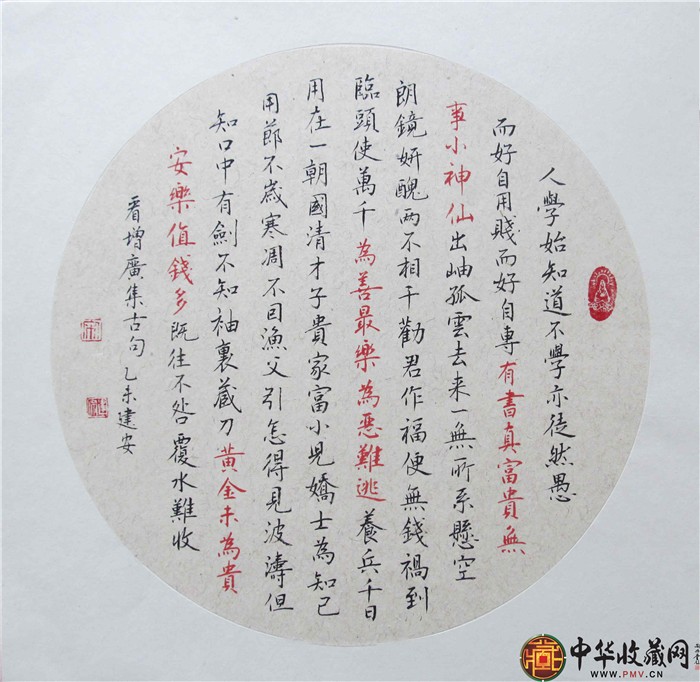 人學始知道不學亦徒然愚
而好自用賤而好自專有書真富貴無
事小神仙出岫孤雲去来一無所系懸空
朗鏡妍醜两不相干勸君作福便無錢禍到
臨頭使萬千為善最樂為惡難逃養兵千日
用在一朝國清才子貴家富小児嬌士為知己
用節不歲寒凋不因漁父引怎得見波濤但
知口中有劍不知袖裏藏刀黄金未為貴
安樂值錢多既往不咎覆水難收
看增廣集古句乙未建安
中华收藏网
WWW.PMV.CN